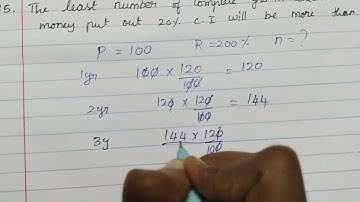 25. The least number of complete yrs in
money put out 20% C.I will be more than
P = 100 R = 200% n = ?
1yr 100 × 120/100 = 120
2yr 120 × 120/100 = 144
3y 144 × 120/100